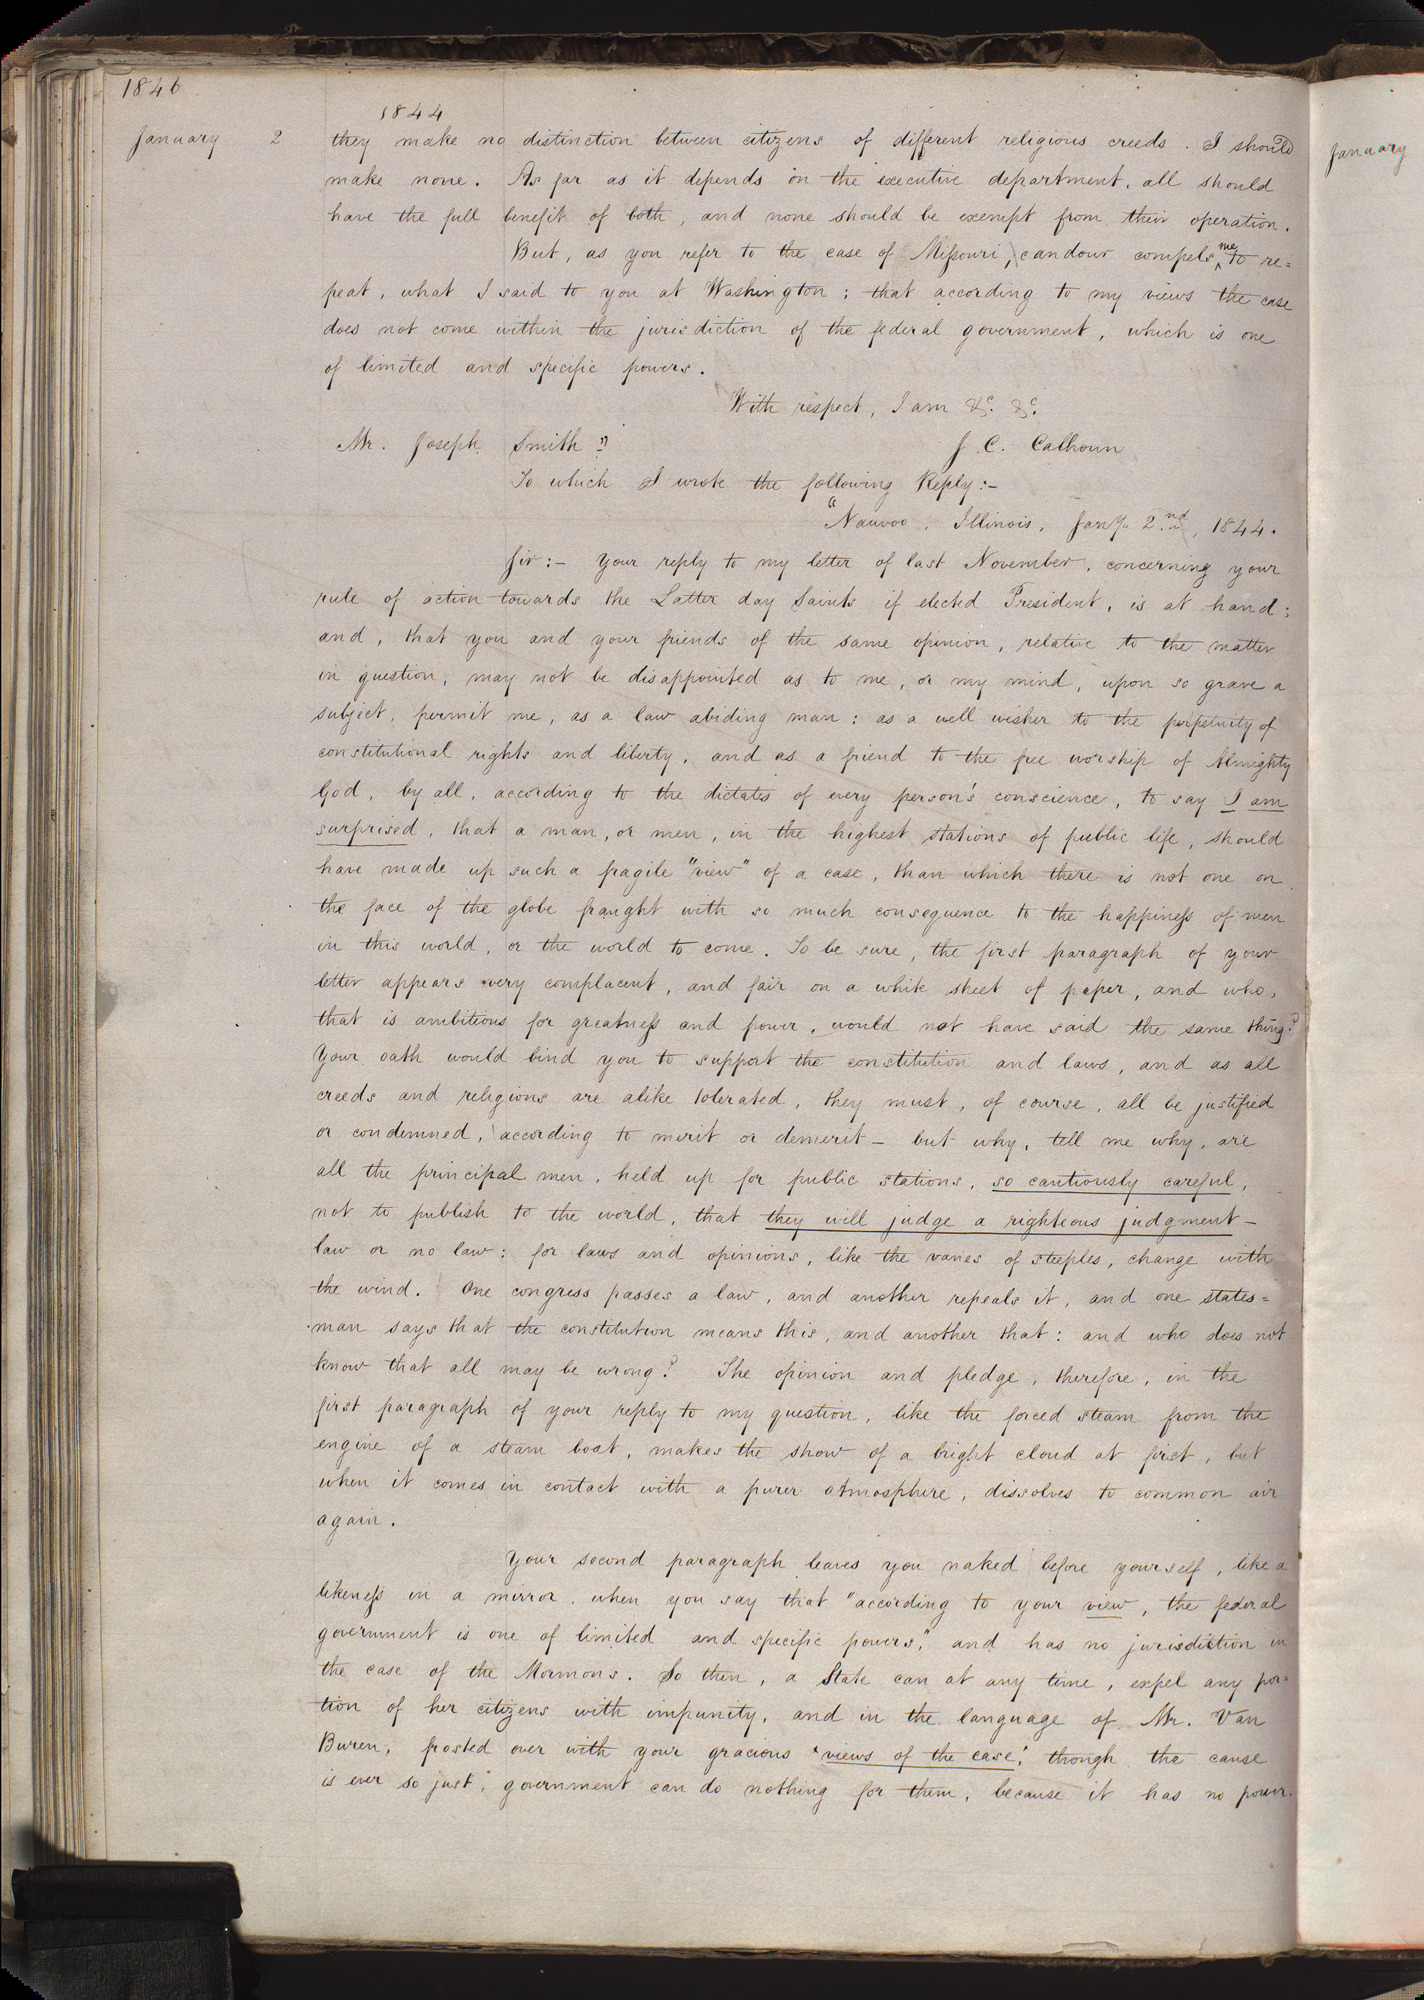 1846
1844
January 2 they make no distinction between citizens of different religious creeds. I should
make none. As far as it depends on the executive department, all should
have the full benefit of both, and none should be exempt from their operation.
But, as you refer to the case of Missouri, candour compels me to re=
peat, what I said to you at Washington; that according to my views the case
does not come within the jurisdiction of the federal government, which is one
of limited and specific powers.
With respect, I am &c. &c.
Mr. Joseph Smith" J. C. Calhoun
To which I wrote the following Reply:-
"Nauvoo, Illinois, Jany. 2nd, 1844.
Sir:- Your reply to my letter of last November, concerning your
rule of action towards the Latter day Saints if elected President, is at hand;
and, that you and your friends of the same opinion, relative to the matter
in question, may not be disappointed as to me, or my mind, upon so grave a
subject, permit me, as a law abiding man: as a well wisher to the perpetuity of
constitutional rights and liberty, and as a friend to the free worship of Almighty
God, by all, according to the dictates of every person's conscience, to say I am
surprised, that a man, or men, in the highest stations of public life, should
have made up such a fragile "view" of a case, than which there is not one on
the face of the globe fraught with so much consequence to the happiness of men
in this world, or the world to come. To be sure, the first paragraph of your
letter appears very complacent, and fair on a white sheet of paper, and who,
that is ambitious for greatness and power, would not have said the same thing?
Your oath would bind you to support the constitution and laws, and as all
creeds and religions are alike tolerated, they must, of course, all be justified
or condemned, according to merit or demerit - but why, tell me why, are
all the principal men, held up for public stations, so cautiously careful,
not to publish to the world, that they will judge a righteous judgment -
law or no law: for laws and opinions, like the vanes of steeples, change with
the wind. One congress passes a law, and another repeals it, and one states=
man says that the constitution means this, and another that: and who does not
know that all may be wrong? The opinion and pledge, therefore, in the
first paragraph of your reply to my question, like the forced steam from the
engine of a steam boat, makes the show of a bright cloud at first, but
when it comes in contact with a purer atmosphere, dissolves to common air
again.
Your second paragraph leaves you naked before yourself, like a
likeness in a mirror, when you say that "according to your view, the federal
government is one of limited and specific powers," and has no jurisdiction in
the case of the Mormons. So then, a State can at any time, expel any por=
tion of her citizens with impunity, and in the language of Mr. Van
Buren, frosted over with your gracious "views of the case," though the cause
is ever so just, government can do nothing for them, because it has no power.
January